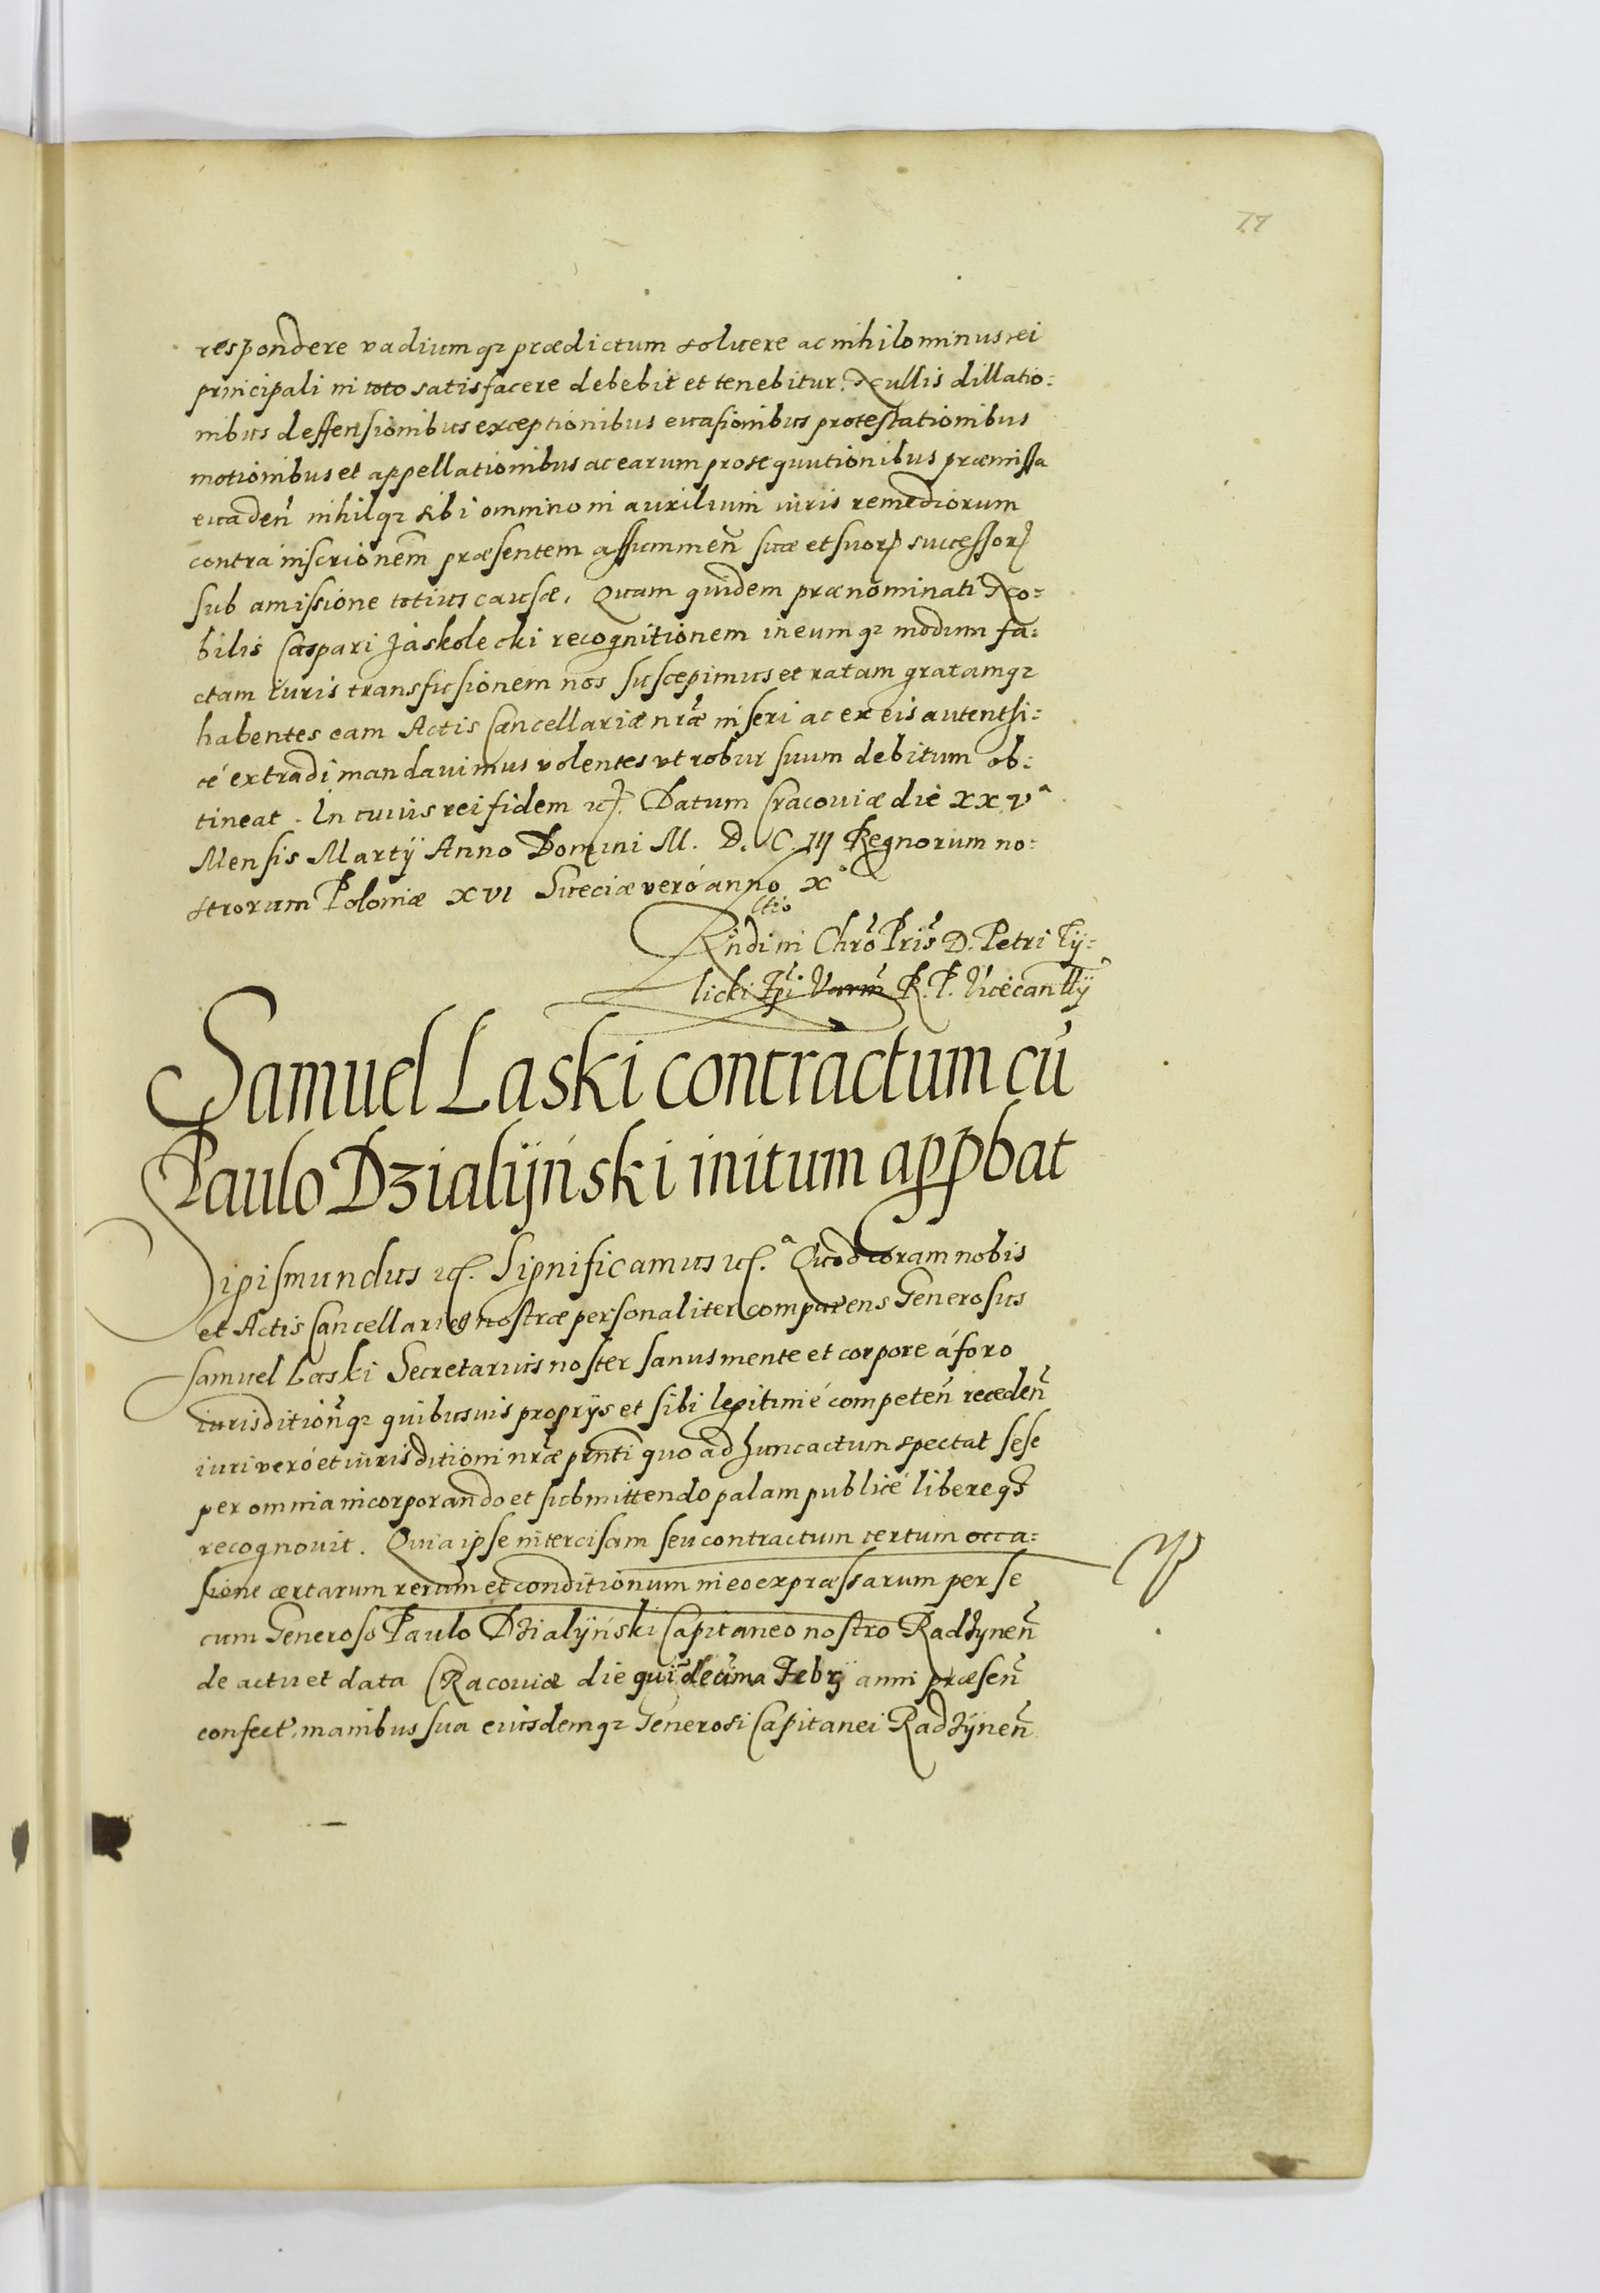 77
respondere vadiumq₃ prædictum soluere ac nihilominus rei
principali in toto satisfacere debebit et tenebitur. Nullis dillatio:
nibus deffensionibus exceptionibus euasionibus protestationibus
motionibus et appellationibus ac earum prosequutionibus præmissa
euadeñ nihilq₃ sibi omnino in auxilium iuris remediorum
contra inscrionem præsentem assummeñ suæ et suorꝝ successorꝝ
sub amissione totius causæ. Quam quidem prænominati No:
bilis Caspari Jaskolecki recognitionem in eumq₃ modum fa:
ctam iuris transfusionem nos suscepimus et ratam gratamq₃
habentes eam Actis Cancellariæ nr̃æ inseri ac ex eis autenthi:
cé extradi mandauimus volentes vt robur suum debitum ob:
tineat. In cuius rei fidem etc. Datum Cracouiæ die XXVª
Mensis Martij Anno Domini M. D. C. III Regnorum no:
strorum Poloniæ XVI Sueciæ veró anno X°
ctio
Rńdi in Chrõ Pris̃ D. Petri Ty:
licki Epi Varm̃ R. P. Vicecanllij
Samuel Laski contractum cũ
Paulo Dzialÿński initum apꝓbat
Sigismundus etc. Significamus etc.ª Quod coram nobis
et Actis Cancellariæ nostræ personaliter comparens Generosus
Samuel Laski Secretarius noster sanus mente et corpore á foro
iurisditioñq₃ quibusuis proprijs et sibi legitimé competeñ recedeñ
iuri veró et iurisditioni nr̃æ pñti quo ad hunc actum spectat sese
per omnia incorporando et submittendo palam publicé libereq₃
recognouit. Quia ipse intercisam seu contractum certum occa:
sione certarum rerum et conditionum in eo expræssarum per se
cum Generoso Paulo Dzialÿński Capitaneo nostro Radzyneñ
de actu et data Cracouiæ die quĩdecima Febrij anni præseñ
confect. manibus sua eiusdemq₃ Generosi Capitanei Radzÿneñ